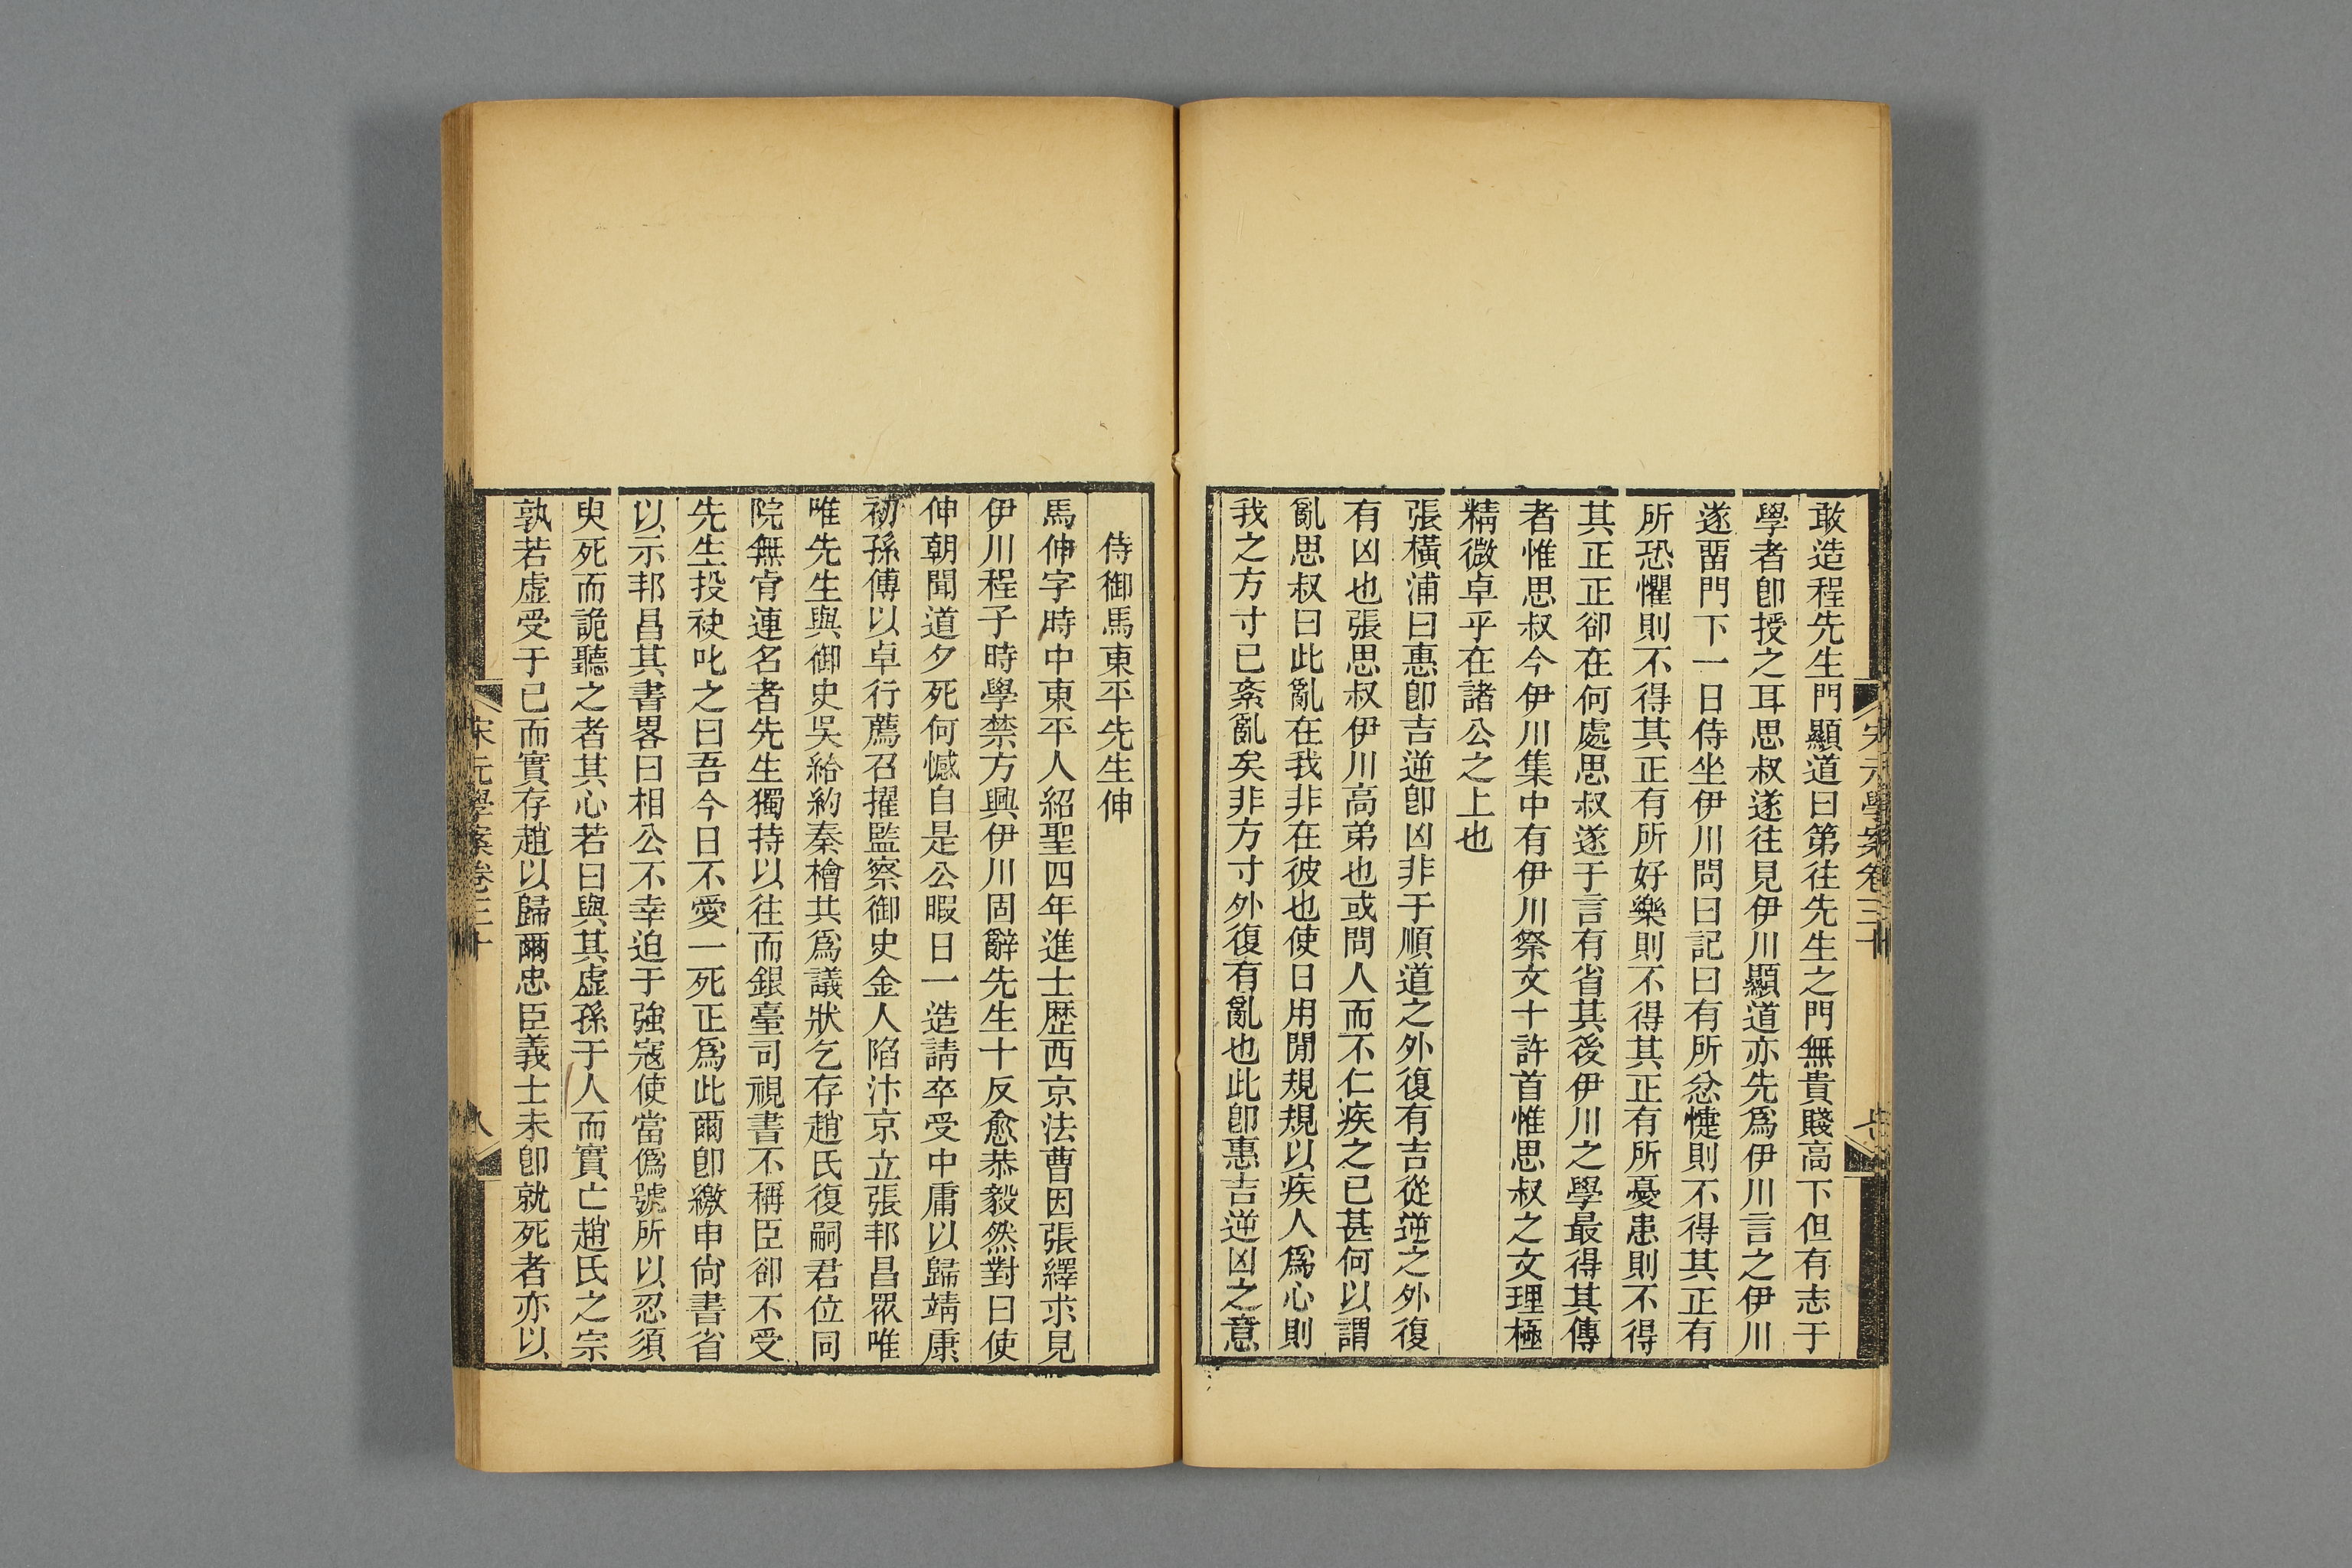 敢造程先生門顯道曰第往先生之門無貴賤高下但有志于
學者卽授之耳思叔遂往見伊川顯道亦先爲伊川言之伊川
遂畱門下一日侍坐伊川問曰記曰有所忿懥則不得其正有
所恐懼則不得其正有所好樂則不得其正有所憂患則不得
其正正卻在何處思叔遂于言有省其後伊川之學最得其傳
者惟思叔今伊川集中有伊川祭文十許首惟思叔之文理極
精微卓乎在諸公之上也
張橫浦曰惠卽吉逆卽凶非于順道之外復有吉從逆之外復
有凶也張思叔伊川高弟也或問人而不仁疾之已甚何以謂
亂思叔曰此亂在我非在彼也使日用閒規規以疾人爲心則
我之方寸已紊亂矣非方寸外復有亂也此卽惠吉逆凶之意
侍御馬東平先生伸
馬伸字時中東平人紹聖四年進士歷西京法曹因張繹求見
伊川程子時學禁方興伊川固辭先生十反愈恭毅然對曰使
伸朝聞道夕死何憾自是公暇日一造請卒受中庸以歸靖康
初孫傅以卓行薦召擢監察御史金人陷汴京立張邦昌眾唯
唯先生與御史吳給約秦檜共爲議狀乞存趙氏復嗣君位同
院無肯連名者先生獨持以往而銀臺司視書不稱臣卻不受
先生投袂叱之曰吾今日不愛一死正爲此爾卽繳申尙書省
以示邦昌其書畧曰相公不幸迫于強寇使當僞號所以忍須
臾死而詭聽之者其心若曰與其虛孫于人而實亡趙氏之宗
孰若虛受于已而實存趙以歸爾忠臣義士未卽就死者亦以
宋元學案卷三十
八